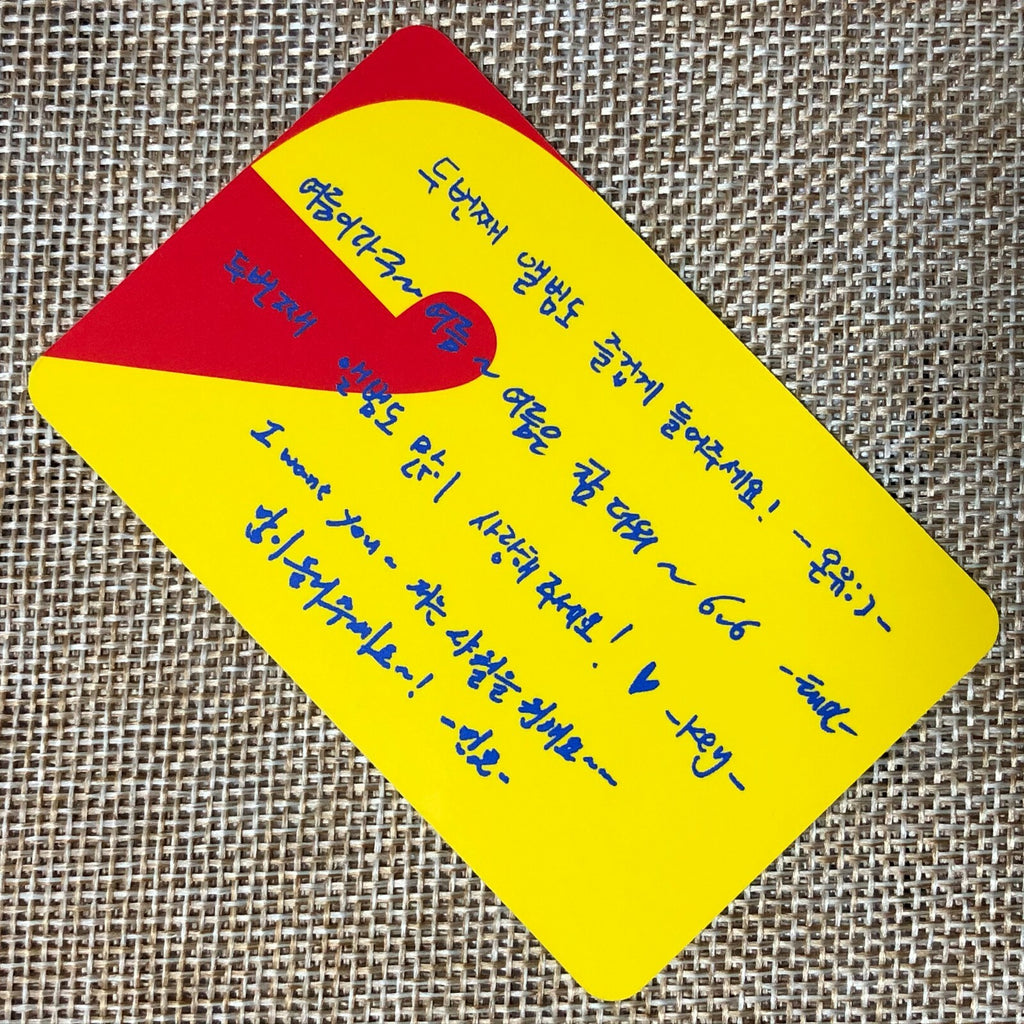 두번째 앨범도 즐겁게 들어주세요! - 온유:) -
여름이라구~ 여름~ 여름은 참 더워~ 6.6 -태민-
두번째 앨범도 많이 사랑해 주세요! ♥ -key-
I want you~ 저는 사월을 원해요~~
같이 응원해주세요~! -민호-